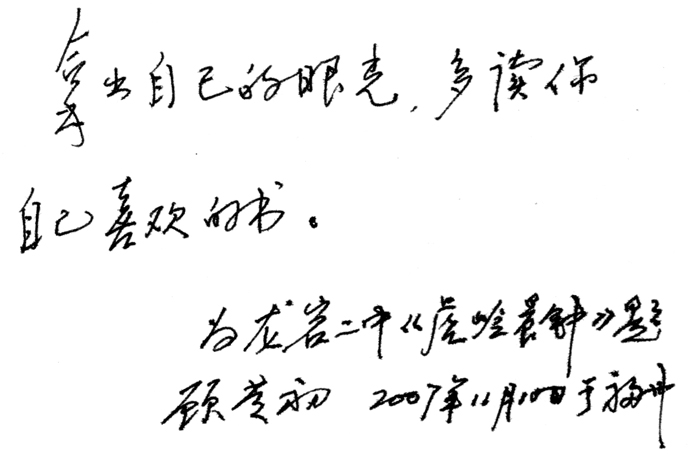 拿出自己的眼光，多读你
自己喜欢的书。
为龙岩二中《虎岭晨钟》题
顾黄初 2007年11月10日于福州